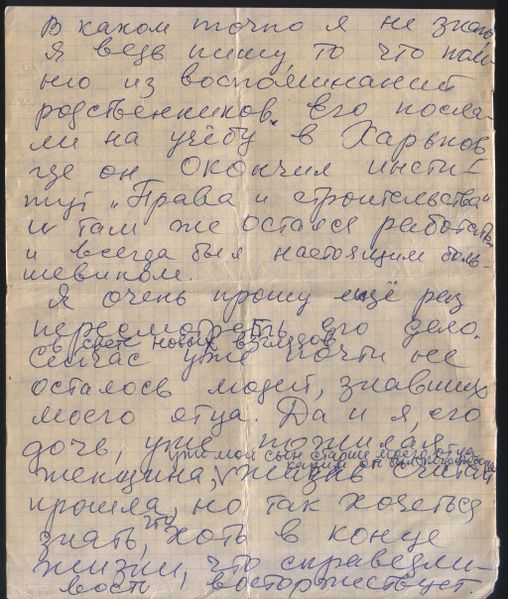 В каком точно я не знаю
Я ведь пишу, то что пом-
ню из воспоминаний
родственников. Его посла-
ли на учёбу в Харьков
где он окончил инсти-
тут „Права и строительства"
и там же остался работать
и всегда был настоящим боль-
шевиком.
Я очень прошу ещё раз
пересмотреть его дело.
в свете новых взглядов
Сейчас уже почти не
осталось людей, знавших
моего отца. Да и я, его
дочь, уже пожилая
уже мой сын старше моего отца
женщина, жизнь считай
каким он был
прошла, но так хочеться
знать, что
хоть в конце
жизни, что справедли-
вость восторжествует.